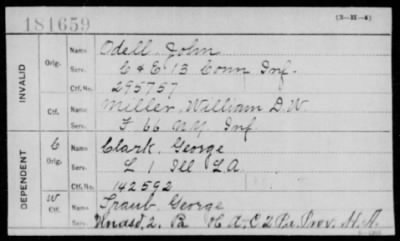 181659
(3-31-4)
INVALID
Orig.
Name Odell, John
Serv. C & E 13 Conn Inf.
Ctf. No. 295757
Ctf.
Name Miller, William D. W.
Serv. F 66 N.Y. Inf.
DEPENDENT
C
Orig.
Name Clark, George
Serv. L 1 Ill L.A.
Ctf. No. 142592
W
Ctf.
Name Spaub, George
Serv. Unasd. 2. Pa H. A. C 2 Pa. Prov. H. A.